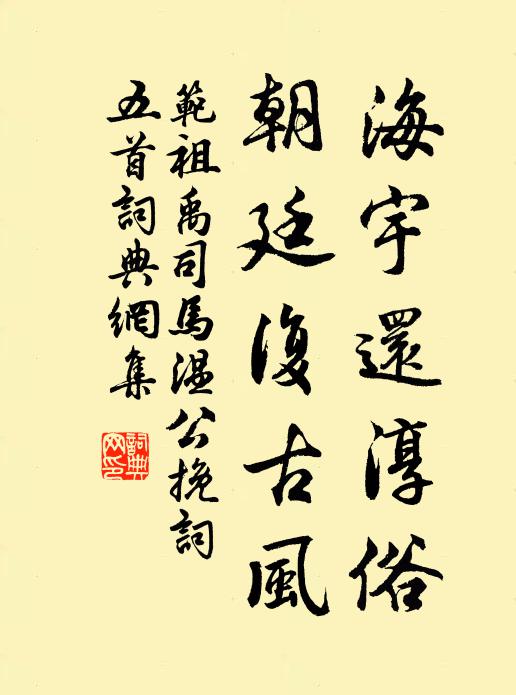 海宇還淳俗
朝廷復古風
範祖禹司馬溫公挽詞
五首詞典網集
詞典
网印